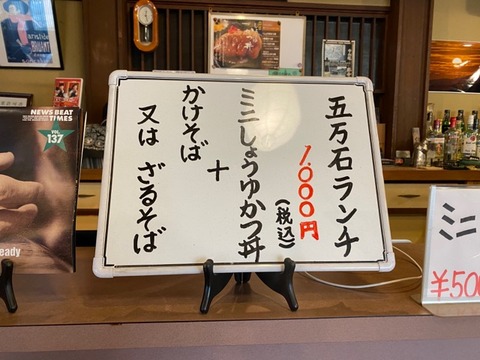 五万石ランチ
1.000円
(税込)
ミニしょうゆかつ丼
+
かけそば
又は ざるそば
NEWS BEAT
TIMES
VOL.
137
eady
ミニ
¥500